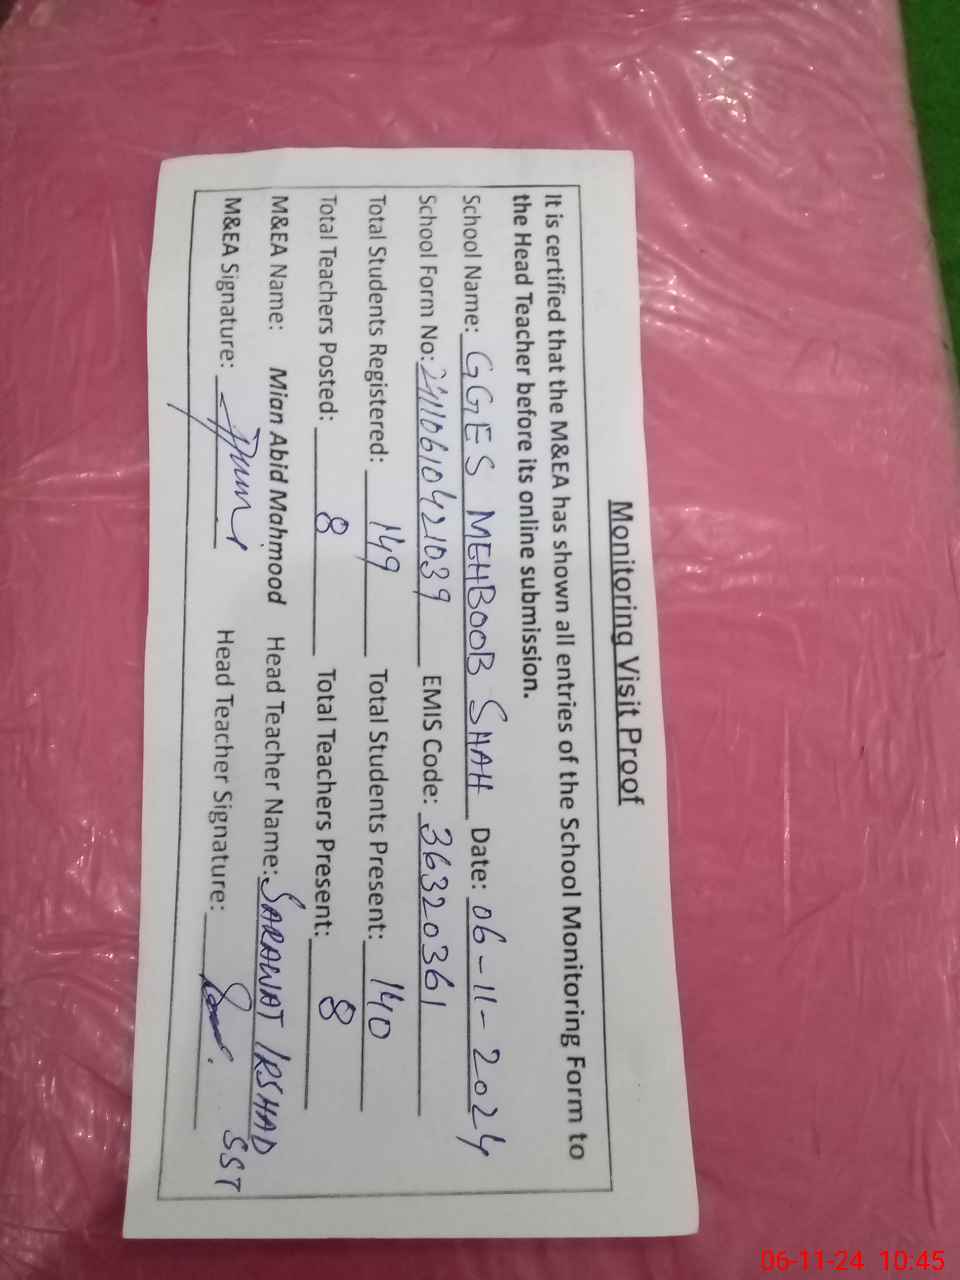 Monitoring Visit Proof
It is certified that the M&EA has shown all entries of the School Monitoring Form to
the Head Teacher before its online submission.
School Name: GGES MEHBOOB SHAH Date: 06-11-2024
School Form No: 24110610421039 EMIS Code: 36320361
Total Students Registered: 149 Total Students Present: 140
Total Teachers Posted: 8 Total Teachers Present: 8
M&EA Name: Mian Abid Mahmood Head Teacher Name: SARAWAT IRSHAD
M&EA Signature: Head Teacher Signature: SST
06-11-24 10:45